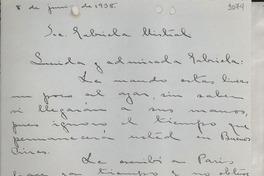 8 de junio de 1938.
3074
Sra. Gabriela Mistral
Querida y admirada Gabriela:
Le mando estas líneas
un poco al azar, sin saber
si llegarán a sus manos,
pues ignoro el tiempo que
permanecerá usted en Buenos
Aires.
Le escribí a París
hace ya tiempo y no obtuve